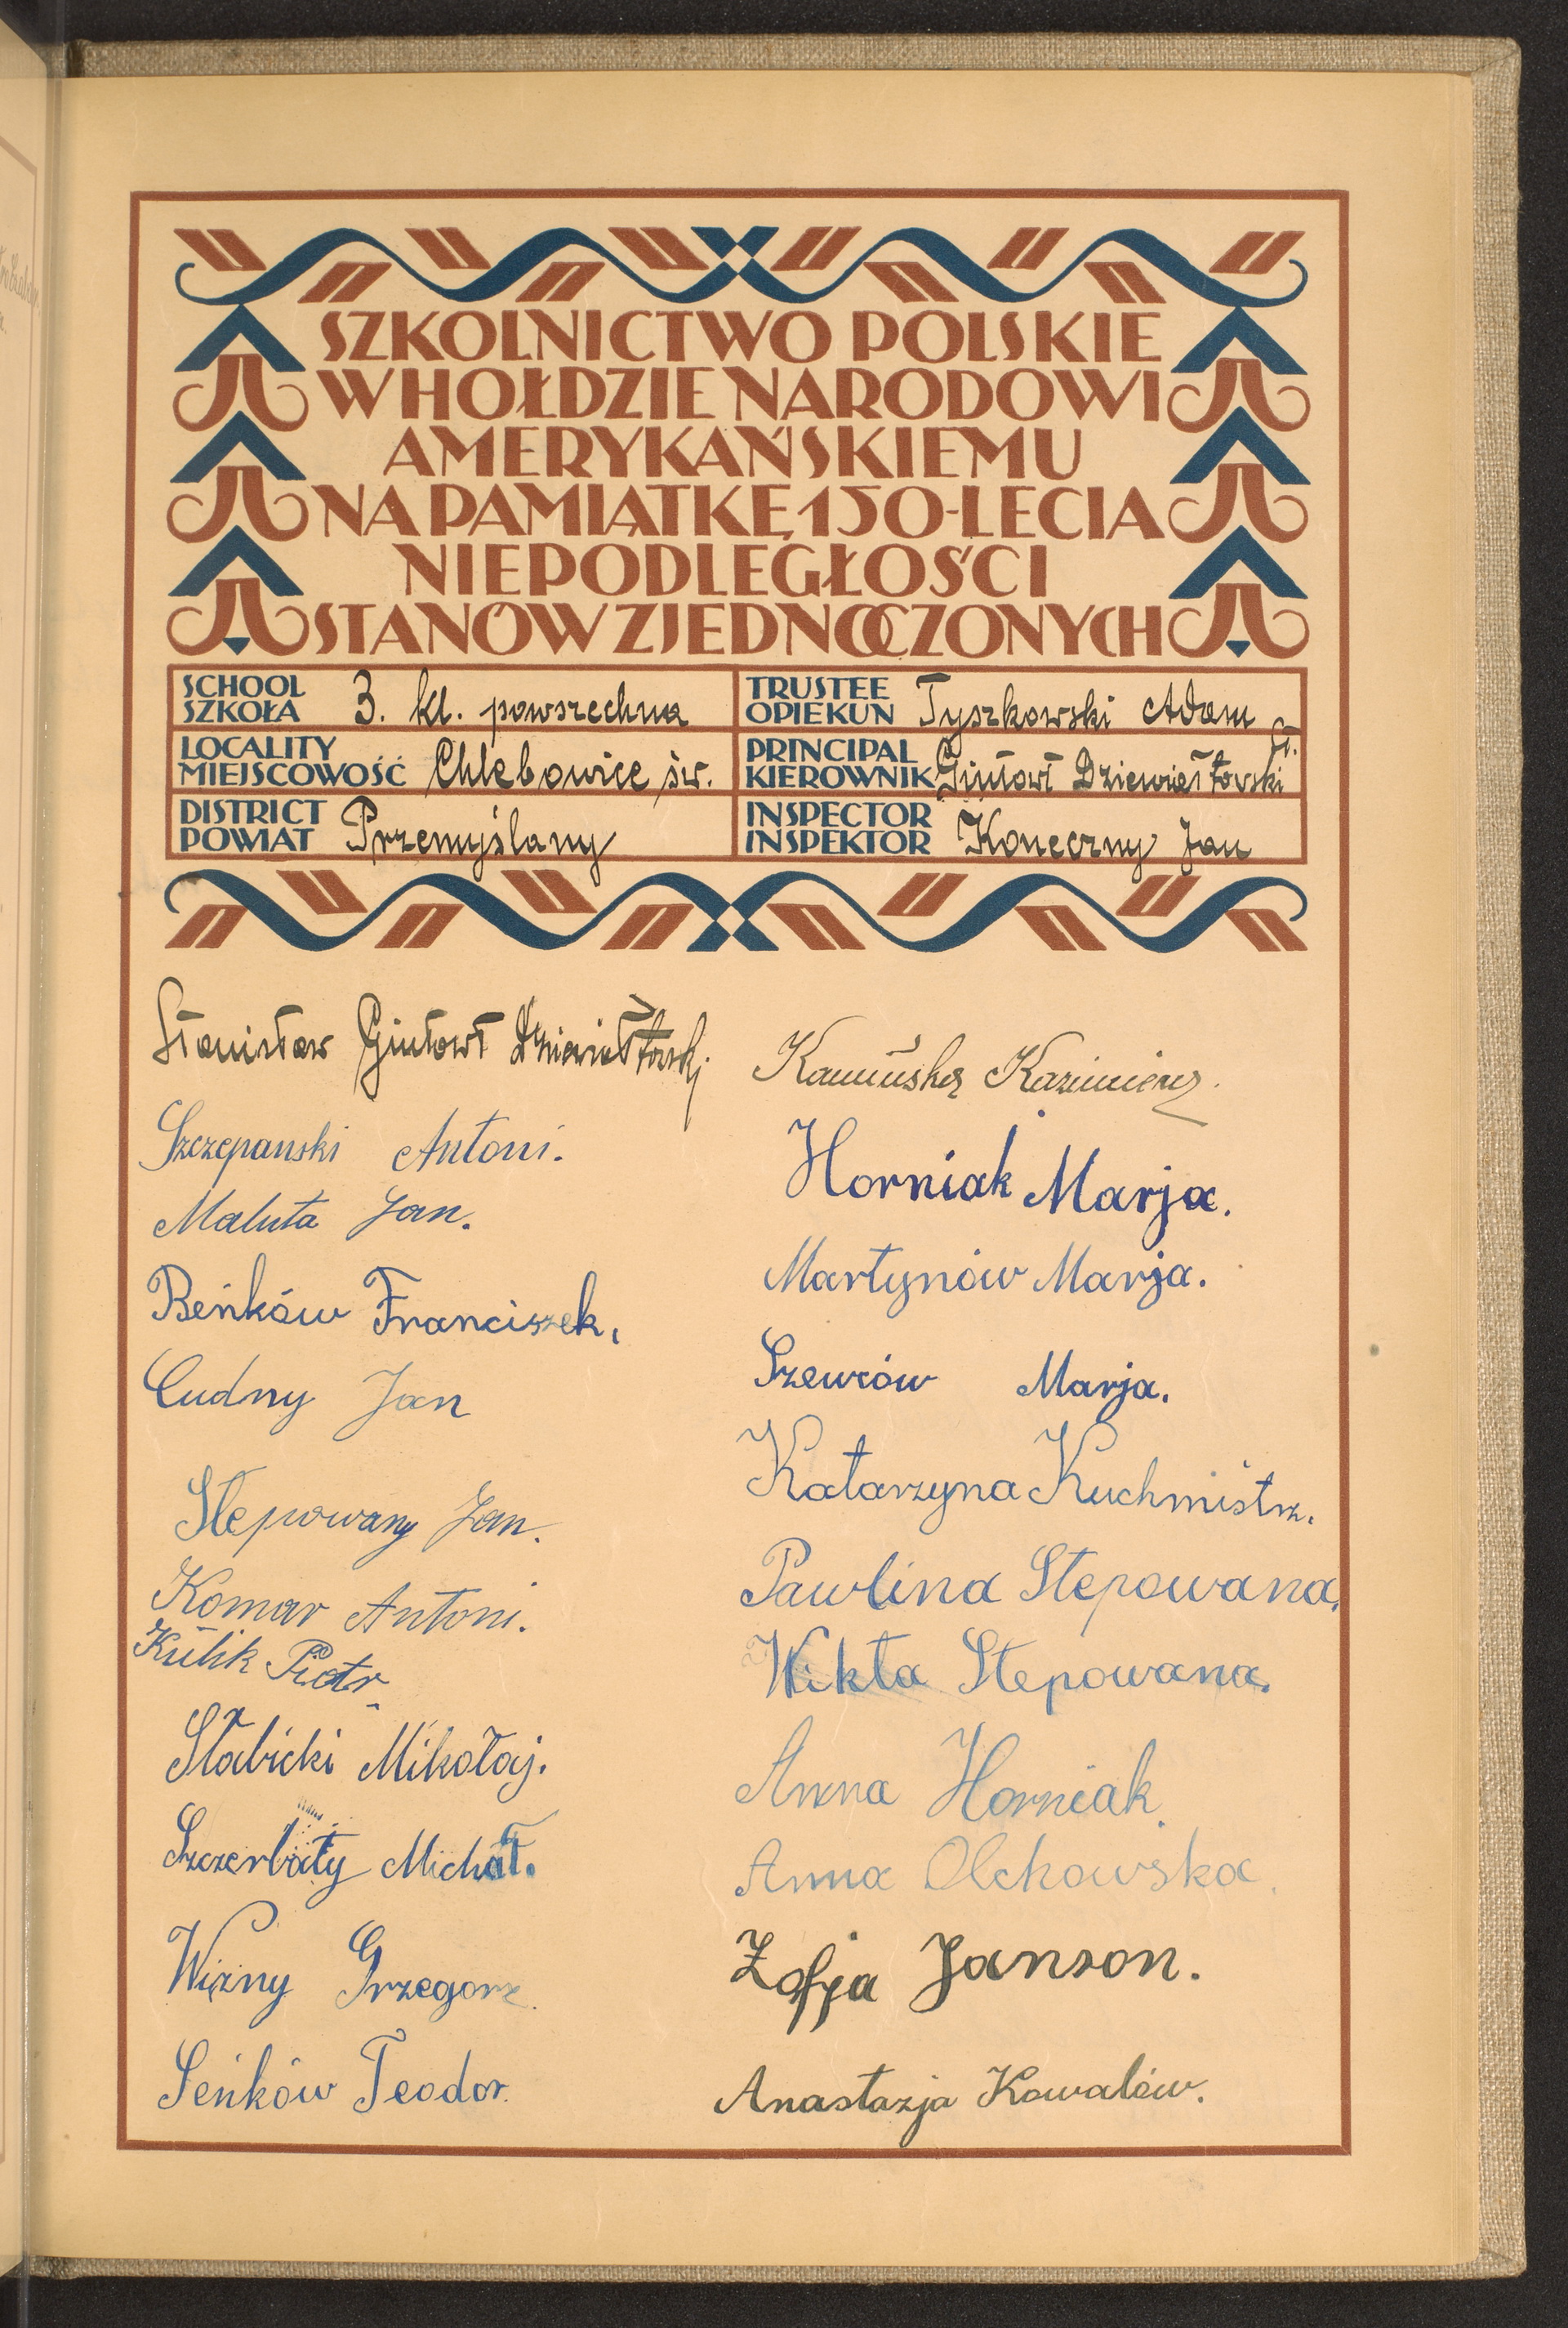 SZKOLNICTWO POLSKIE
W HOŁDZIE NARODOWI
AMERYKAŃSKIEMU
NA PAMIĄTKĘ 150-LECIA
NIEPODLEGŁOŚCI
STANÓW ZJEDNOCZONYCH
SCHOOL
SZKOŁA 3. kl. powszechna
TRUSTEE
OPIEKUN Tyszkowski Adam
LOCALITY
MIEJSCOWOŚĆ Chlebowice św.
PRINCIPAL St.
KIEROWNIK Giułowt Dziewiałtowski
DISTRICT
POWIAT Przemyślany
INSPECTOR
INSPEKTOR Koneczny Jan
Stanisław Giułowt Dziewiałtowski
Szczepanski Antoni.
Maluta Jan.
Beńków Franciszek.
Cudny Jan
Stepowany Jan.
Komar Antoni.
Kulik Piotr
Słabicki Mikołaj.
Szczerbaty Michał.
Wizny Grzegorz.
Seńków Teodor.
Kazimierz.
Horniak Marja.
Martynów Marja.
Szewców Marja.
Katarzyna Kuchmistrz.
Pawlina Stepowana.
Wikta Stepowana.
Anna Horniak.
Anna Olchowska.
Zofja Janson.
Anastazja Kowalów.